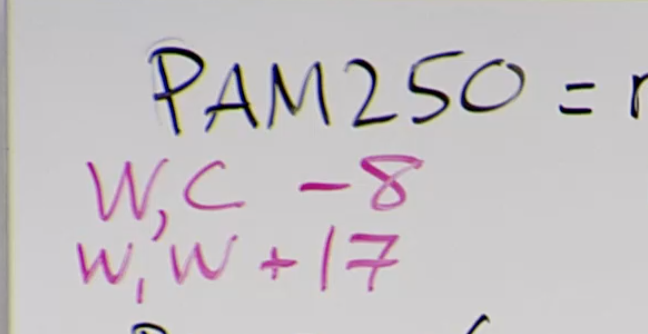 PAM250 =
W,C -8
W,W +17